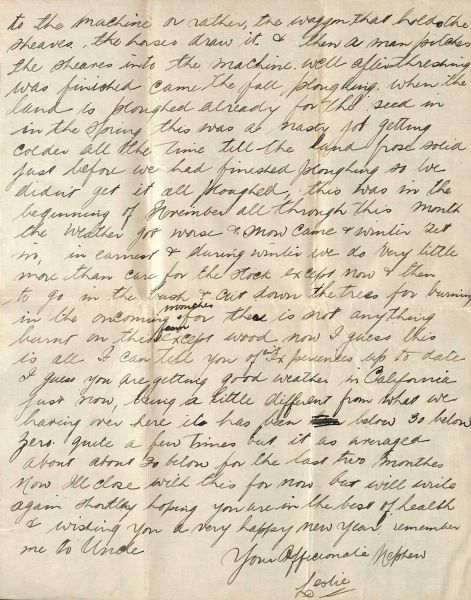 to the machine or rather, the waggon that holds the
sheaves. the horses draw it & then a man pitches
the sheaves into the machine. well after threshing
was finished came the fall ploughing. when the
land is ploughed already for the seed in
in the spring this was a nasty job getting
colder all the time till the land froze solid
just before we had finished ploughing so we
didn't get it all ploughed, this was in the
beginning of November all through this month
the weather got worse & snow came & winter set
in, in earnest & during winter we do very little
more than care for the stock except now & then
to go in the bush & cut down the trees for burning
monthes
in the oncoming for there is not anything
farm
burnt on this except wood now I guess this
is all I can tell you of my Experiences up to date
I guess you are getting good weather in California
just now, being a little different from what we
having over here its has been below 30 below
zero quite a few times but it as averaged
about about 30 below for the last two monthes
Now Ill close with this for now but will write
again shortley hoping you are in the best of health
& wishing you a very happy new year remember
me to Uncle
Your Afficionate Nephew
Leslie